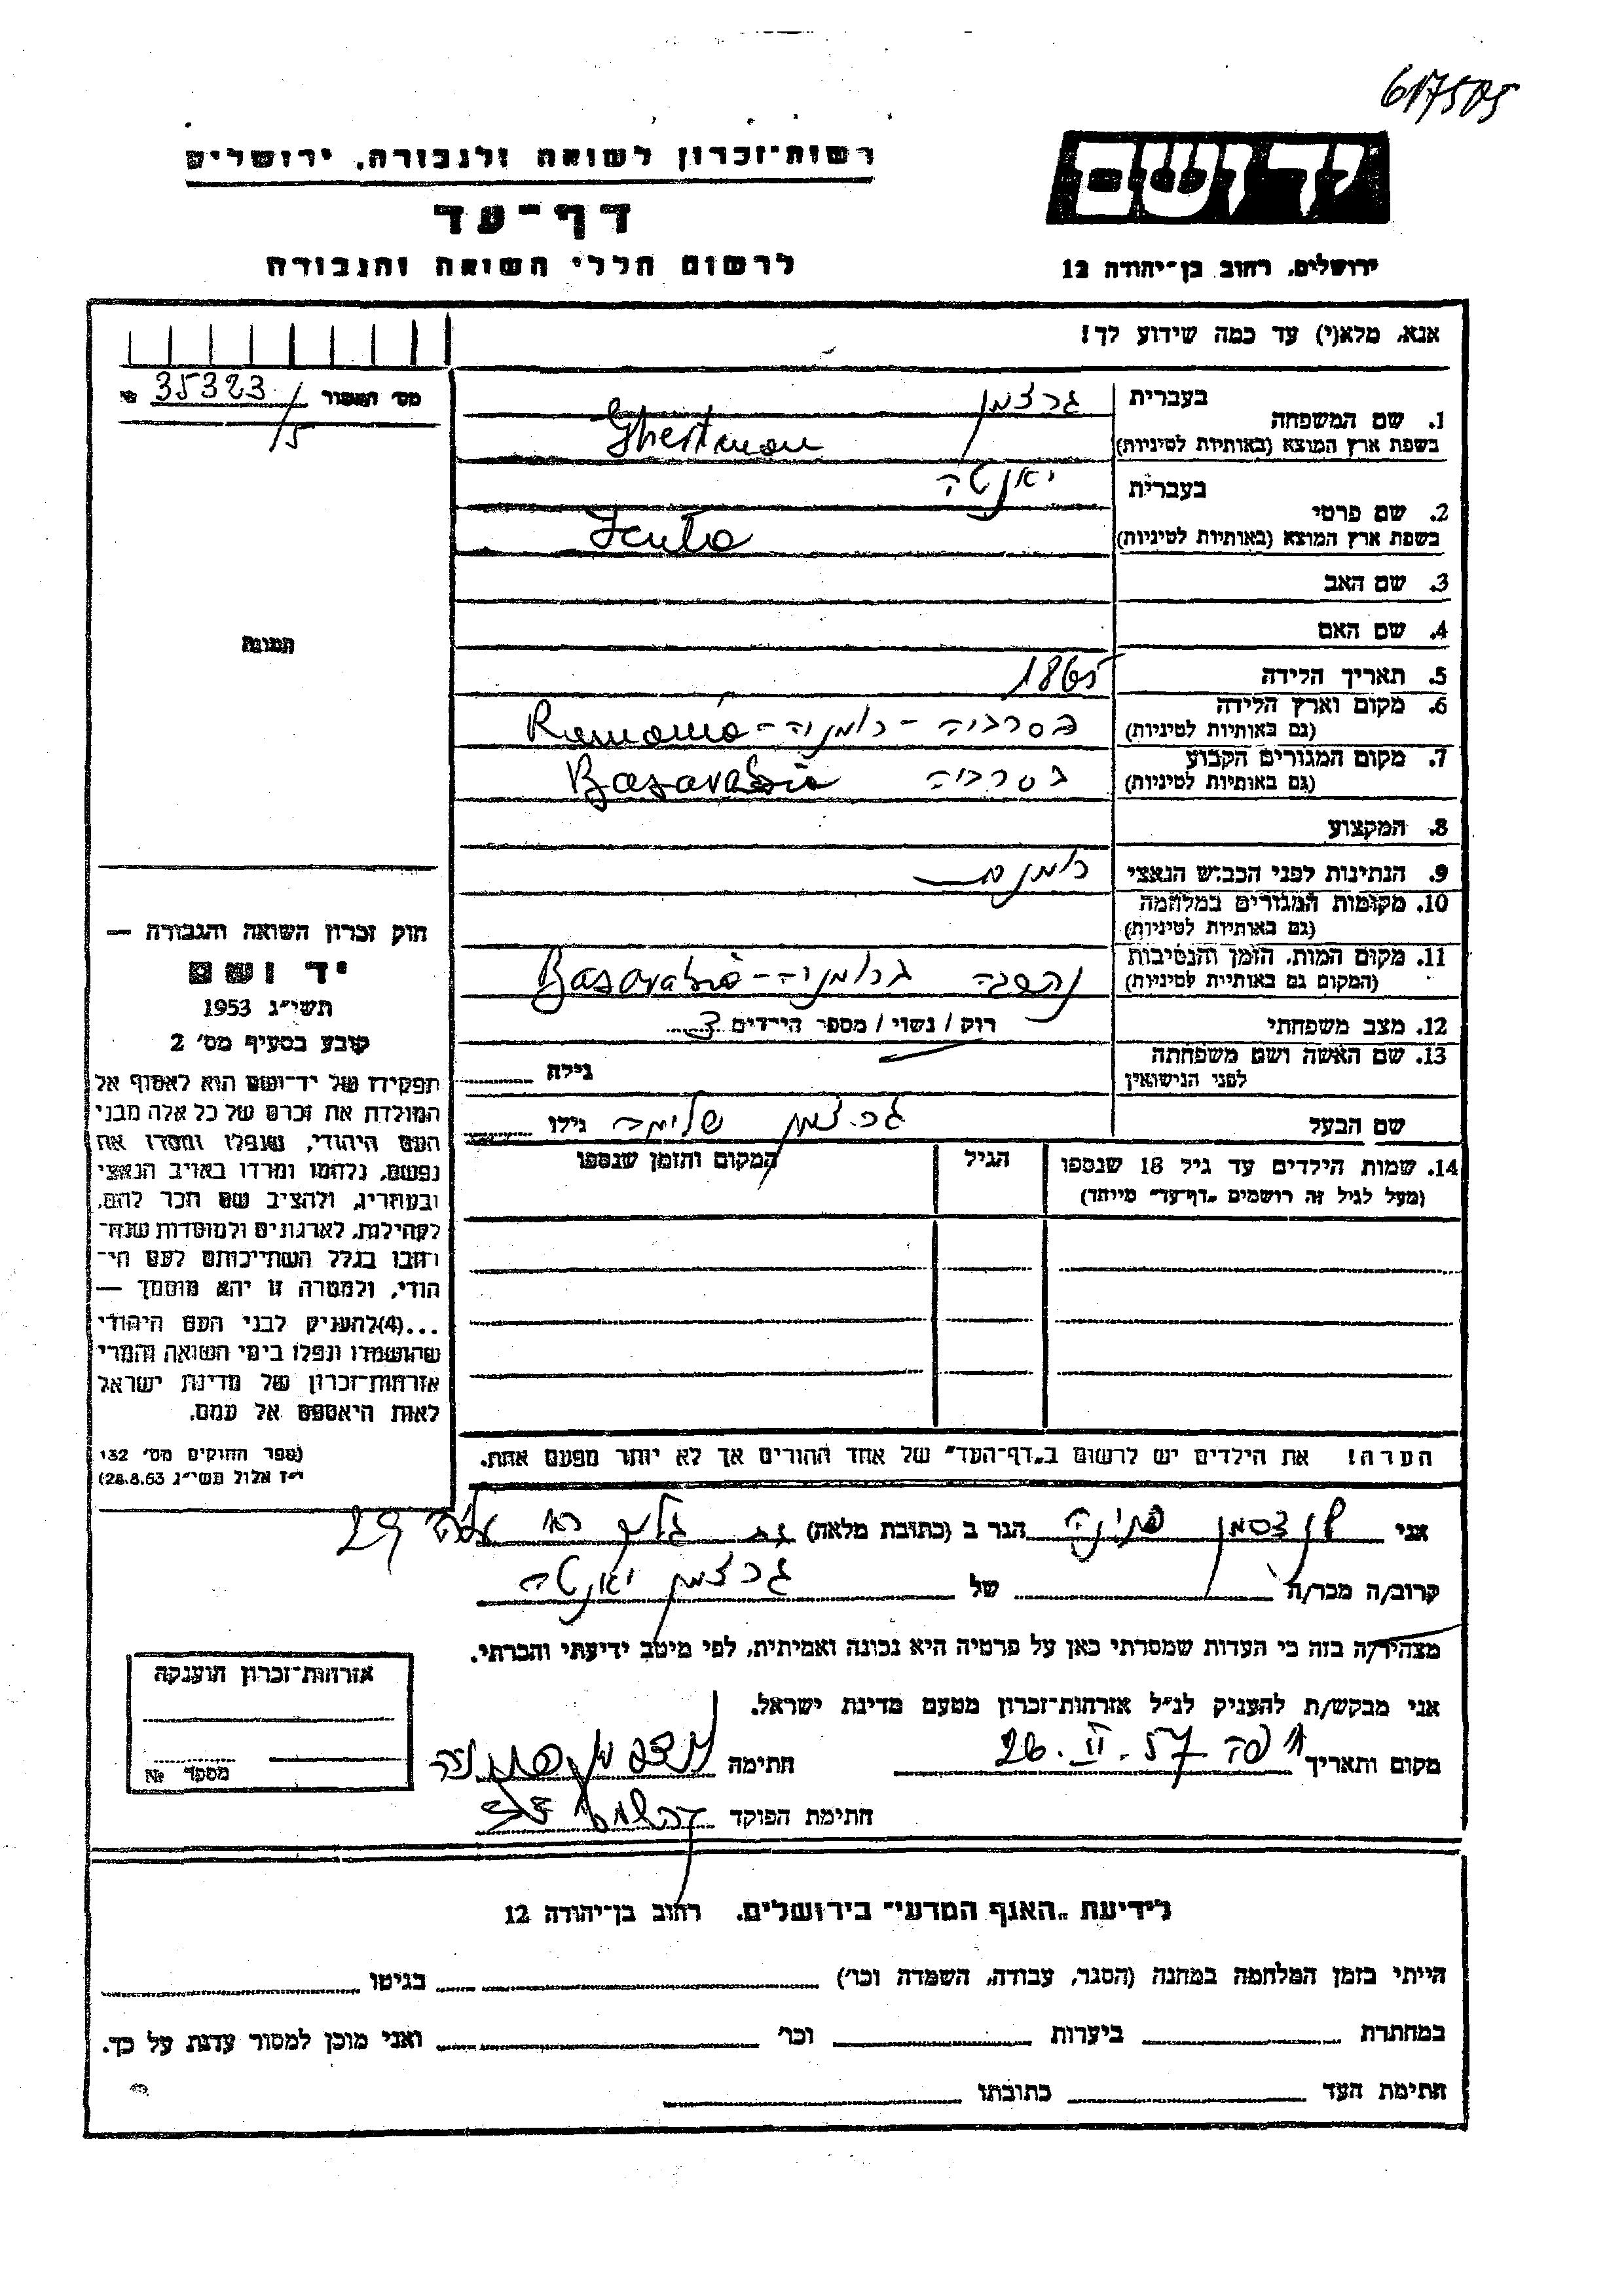 617505
רשות־זכרון לשואה ולגבורה, ירושלים
דף־עד
לרשום חללי השואה והגבורה
יד ושם
ירושלים, רחוב בן־יהודה 12
אנא, מלא(י) עד כמה שידוע לך!
מס' המפקד № 35323/5
1. שם המשפחה
בעברית גרצמן
בשפת ארץ המוצא (באותיות לטיניות) Ghertman
2. שם פרטי
בעברית יאנטה
בשפת ארץ המוצא (באותיות לטיניות) Ienta
3. שם האב
4. שם האם
תמונה
5. תאריך הלידה 1865
6. מקום וארץ הלידה
(גם באותיות לטיניות) בסרביה - רומניה - Romania
7. מקום המגורים הקבוע
(גם באותיות לטיניות) בסרביה Basarabia
8. המקצוע
9. הנתינות לפני הכבוש הנאצי
10. מקומות המגורים במלחמה
(גם באותיות לטיניות)
11. מקום המות, הזמן והנסיבות
(המקום גם באותיות לטיניות) נהרגה ברומניה - Basarabia
12. מצב משפחתי רווק / נשוי / מספר הילדים 3
13. שם האשה ושם משפחתה
לפני הנישואין גילה
שם הבעל גרצמן שלימה גילו
14. שמות הילדים עד גיל 18 שנספו הגיל המקום והזמן שנספו
(מעל לגיל זה רושמים „דף־עד" מיוחד)
הערה! את הילדים יש לרשום ב„דף־העד" של אחד ההורים אך לא יותר מפעם אחת.
חוק זכרון השואה והגבורה —
יד ושם
תשי"ג 1953
קובע בסעיף מס' 2
תפקידו של יד־ושם הוא לאסוף אל
המולדת את זכרם של כל אלה מבני
העם היהודי, שנפלו ומסרו את
נפשם, נלחמו ומרדו באויב הנאצי
ובעוזריו, ולהציב שם וזכר להם,
לקהילות, לארגונים ולמוסדות שנח־
רבו בגלל השתייכותם לעם הי־
הודי, ולמטרה זו יהא מוסמך —
...(4)להעניק לבני העם היהודי
שהושמדו ונפלו בימי השואה והמרי
אזרחות־זכרון של מדינת ישראל
לאות היאספם אל עמם.
(ספר החוקים מס' 132
י"ז אלול תשי"ג 28.8.53)
אני הגר ב (כתובת מלאה) 29
קרוב/ה מכר/ה של גרצמן יאנטה
מצהיר/ה בזה כי העדות שמסרתי כאן על פרטיה היא נכונה ואמיתית, לפי מיטב ידיעתי והכרתי.
אני מבקש/ת להעניק לנ"ל אזרחות־זכרון מטעם מדינת ישראל.
מקום ותאריך 26. II. 57 חתימה
חתימת הפוקד
אזרחות־זכרון הוענקה
מספר №
לידיעת „האגף המדעי" בירושלים, רחוב בן־יהודה 12
הייתי בזמן המלחמה במחנה (הסגר, עבודה, השמדה וכו') בגיטו
במחתרת ביערות וכו' ואני מוכן למסור עדות על כך.
חתימת העד כתובתו